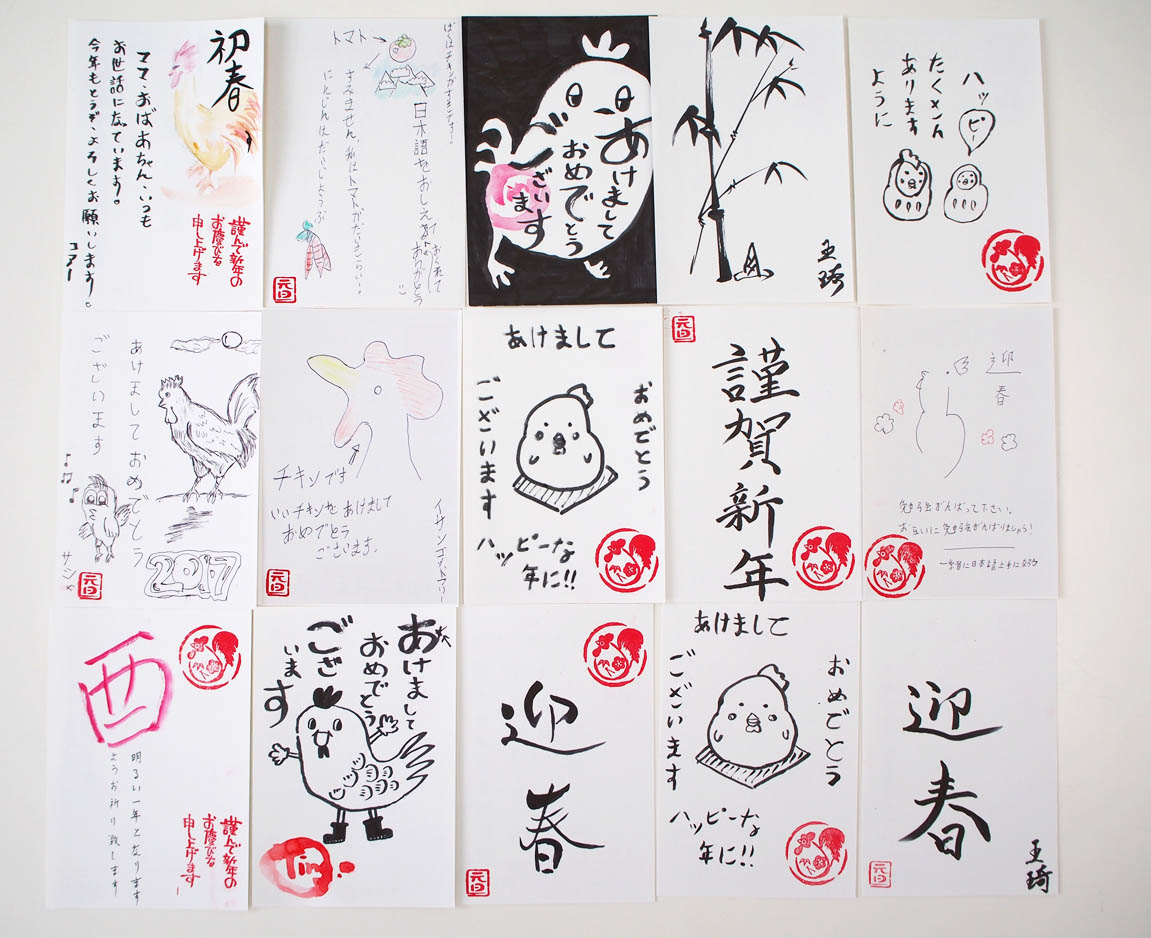 初春
ママ・おばあちゃん・いつも
お世話になっています。
今年もどうぞ、よろしくお願いします!。
コアー
謹んで新年の
お慶びを
申し上げます
トマト
日本語をおしえて
おめでとう
すみません。私はトマトがだいきらい。
にんじんはだいじょうぶ
元旦
あけまして
おめでとう
ございます
王琦
ハッ
ピー
たくさん
あります
ように
あけまして おめでとう
ございます
サシャ
2017
元旦
チキンです
いいチキンを あけまして
おめでとう
ございます.
元旦
あけまして
おめでとう
ございます
ハッピーな
年に!!
元旦
謹賀新年
迎春
勉強がんばって下さい。
お互いに勉強がんばりましょう!
一緒に日本語上手に
酉
明るい一年となります
ようお祈り致します
謹んで新年の
お慶びを
申し上げます
あけまして
おめでとう
ござ
います
Tin
迎春
元旦
あけまして
おめでとう
ございます
ハッピーな
年に!!
迎春
元旦
王琦